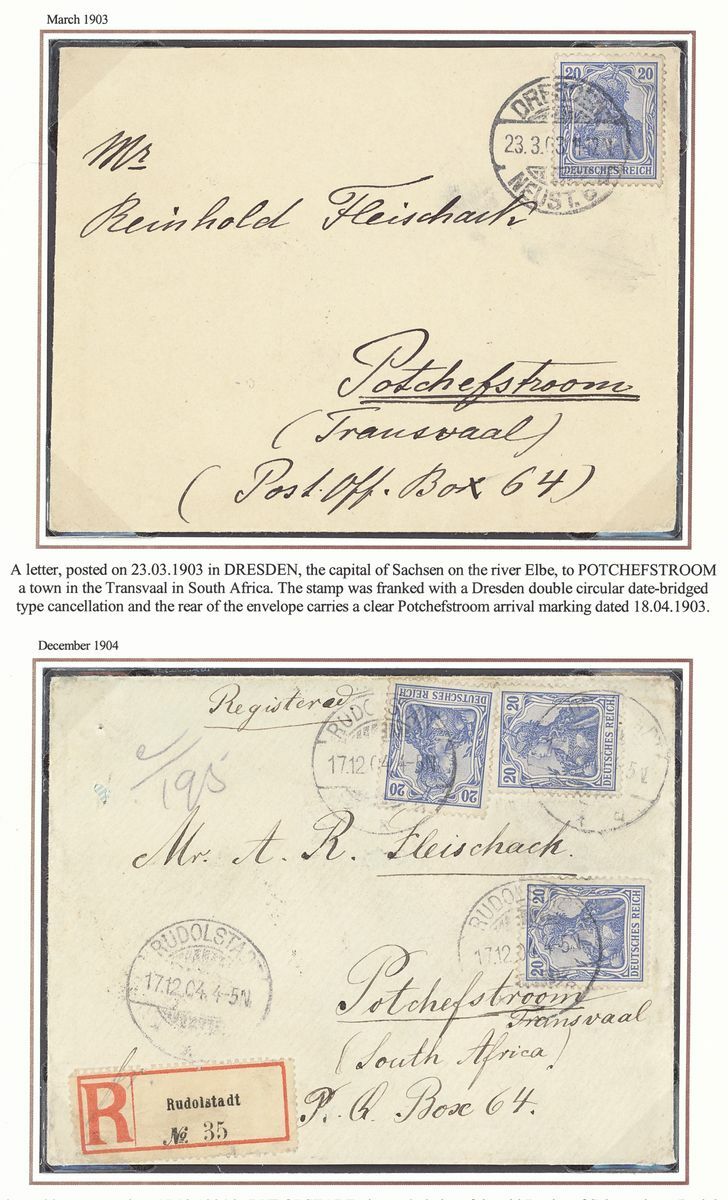 March 1903
20 20
DEUTSCHES REICH
DRESDEN
23.3.03. 11-12V.
NEUST. 6
Mr
Reinhold Fleischack
Potchefstroom
(Transvaal)
(Post. Off. Box 64)
A letter, posted on 23.03.1903 in DRESDEN, the capital of Sachsen on the river Elbe, to POTCHEFSTROOM
a town in the Transvaal in South Africa. The stamp was franked with a Dresden double circular date-bridged
type cancellation and the rear of the envelope carries a clear Potchefstroom arrival marking dated 18.04.1903.
December 1904
Registered
195
20 20
DEUTSCHES REICH
17.12.04. 4-5N.
20
DEUTSCHES REICH
Mr. A. R. Fleischack.
RUDOLSTADT
17.12.04. 4-5N.
RUDOLST
17.12.04. 4-5N.
20 20
DEUTSCHES REICH
Potchefstroom
Transvaal
(South Africa)
P. O. Box 64.
R
Rudolstadt
No. 35